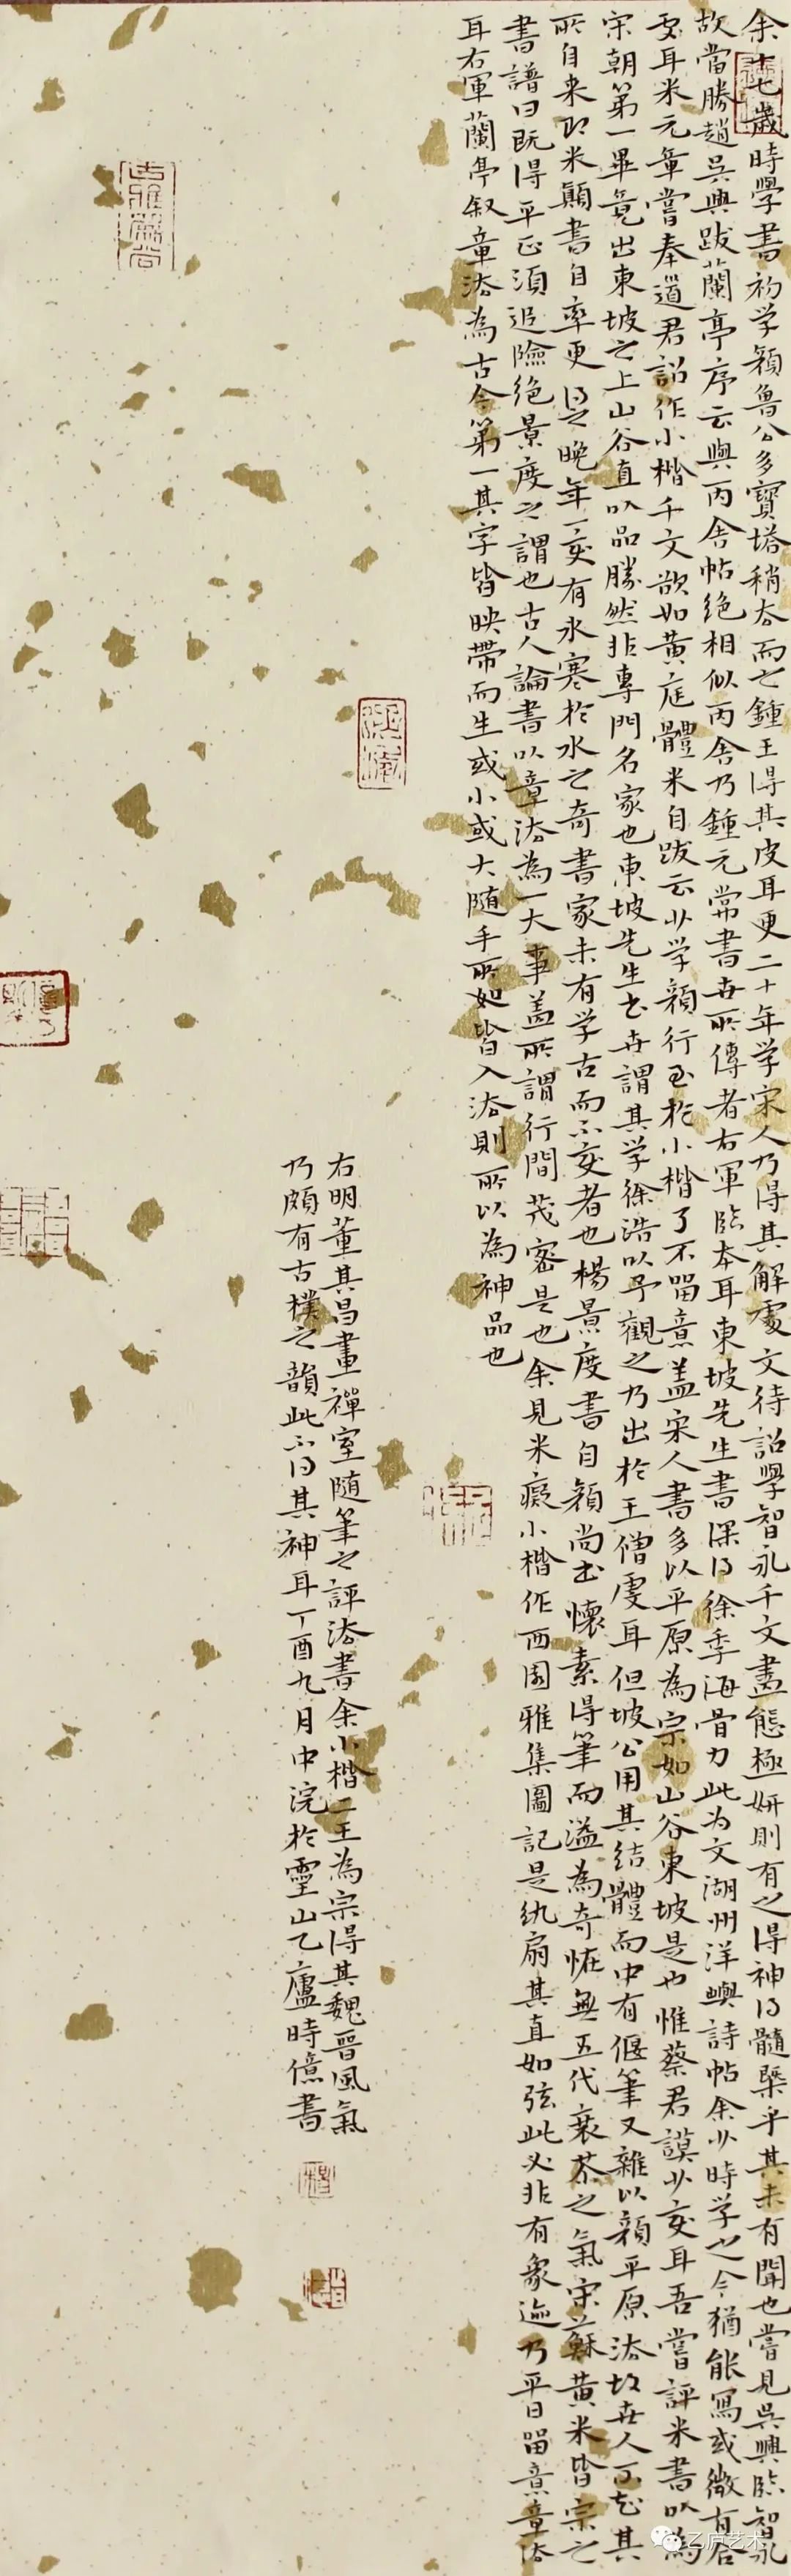 余十七歲時學書初学顔魯公多寳塔稍去而之鍾王得其皮耳更二十年学宋人乃得其解處文待詔學智永千文盡態極妍則有之得神得髓槩乎其未有聞也嘗見吳興臨智永
故當勝趙吳興跋蘭亭序云與丙舍帖绝相似丙舍乃鍾元常書世所傳者右軍臨本耳東坡先生書深得徐季海骨力此为文湖州洋嶼詩帖余少時学之今猶能寫或微有合
處耳米元章嘗奉道君詔作小楷千文欲如黄庭體米自跋云少学顔行至於小楷了不留意盖宋人書多以平原為宗如山谷東坡是也惟蔡君謨少变耳吾嘗評米書以為
宋朝第一畢竟出東坡之上山谷直以品勝然非專門名家也東坡先生書世謂其学徐浩以予觀之乃出於王僧虔耳但坡公用其结體而中有偃筆又雜以顔平原法故世人不知其
所自来即米顛書自率更得之晚年一变有氷寒於水之奇書家未有学古而不变者也楊景度書自顔尚書懷素得筆而溢為奇恠無五代衰苶之氣宋蘇黄米皆宗之
書譜曰既得平正須追險绝景度之謂也古人論書以章法為一大事盖所謂行間茂密是也余見米癡小楷作西園雅集圖記是纨扇其直如弦此必非有象迹乃平日留意章法
耳右軍蘭亭叙章法為古今第一其字皆映帶而生或小或大随手所如皆入法則所以為神品也
右明董其昌畫禪室随筆之評法書余小楷二王為宗得其魏晋風氣
乃頗有古樸之韻此不得其神耳丁酉九月中浣於靈山乙廬時億書
乙庐艺术